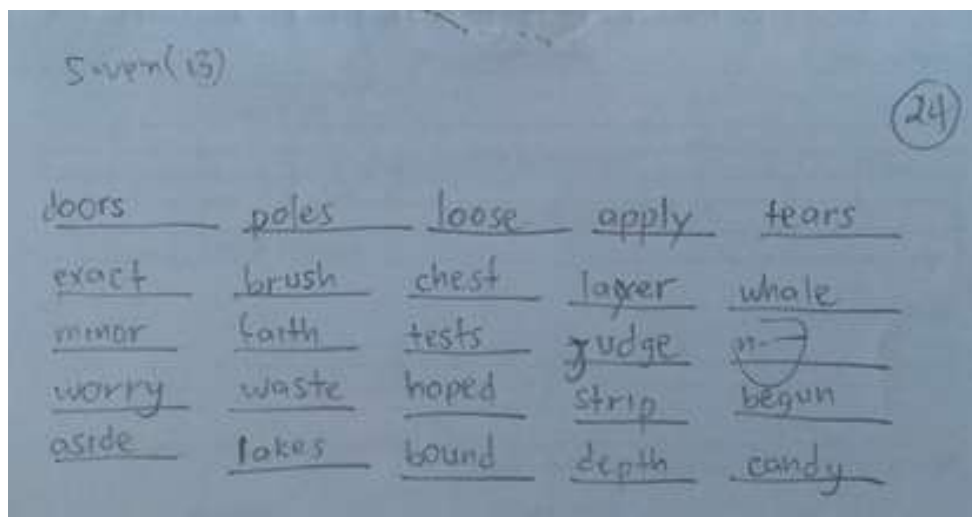 24
doors poles loose apply tears
exact brush chest layer whale
minor faith tests judge
worry waste hoped strip begun
aside lakes bound depth candy